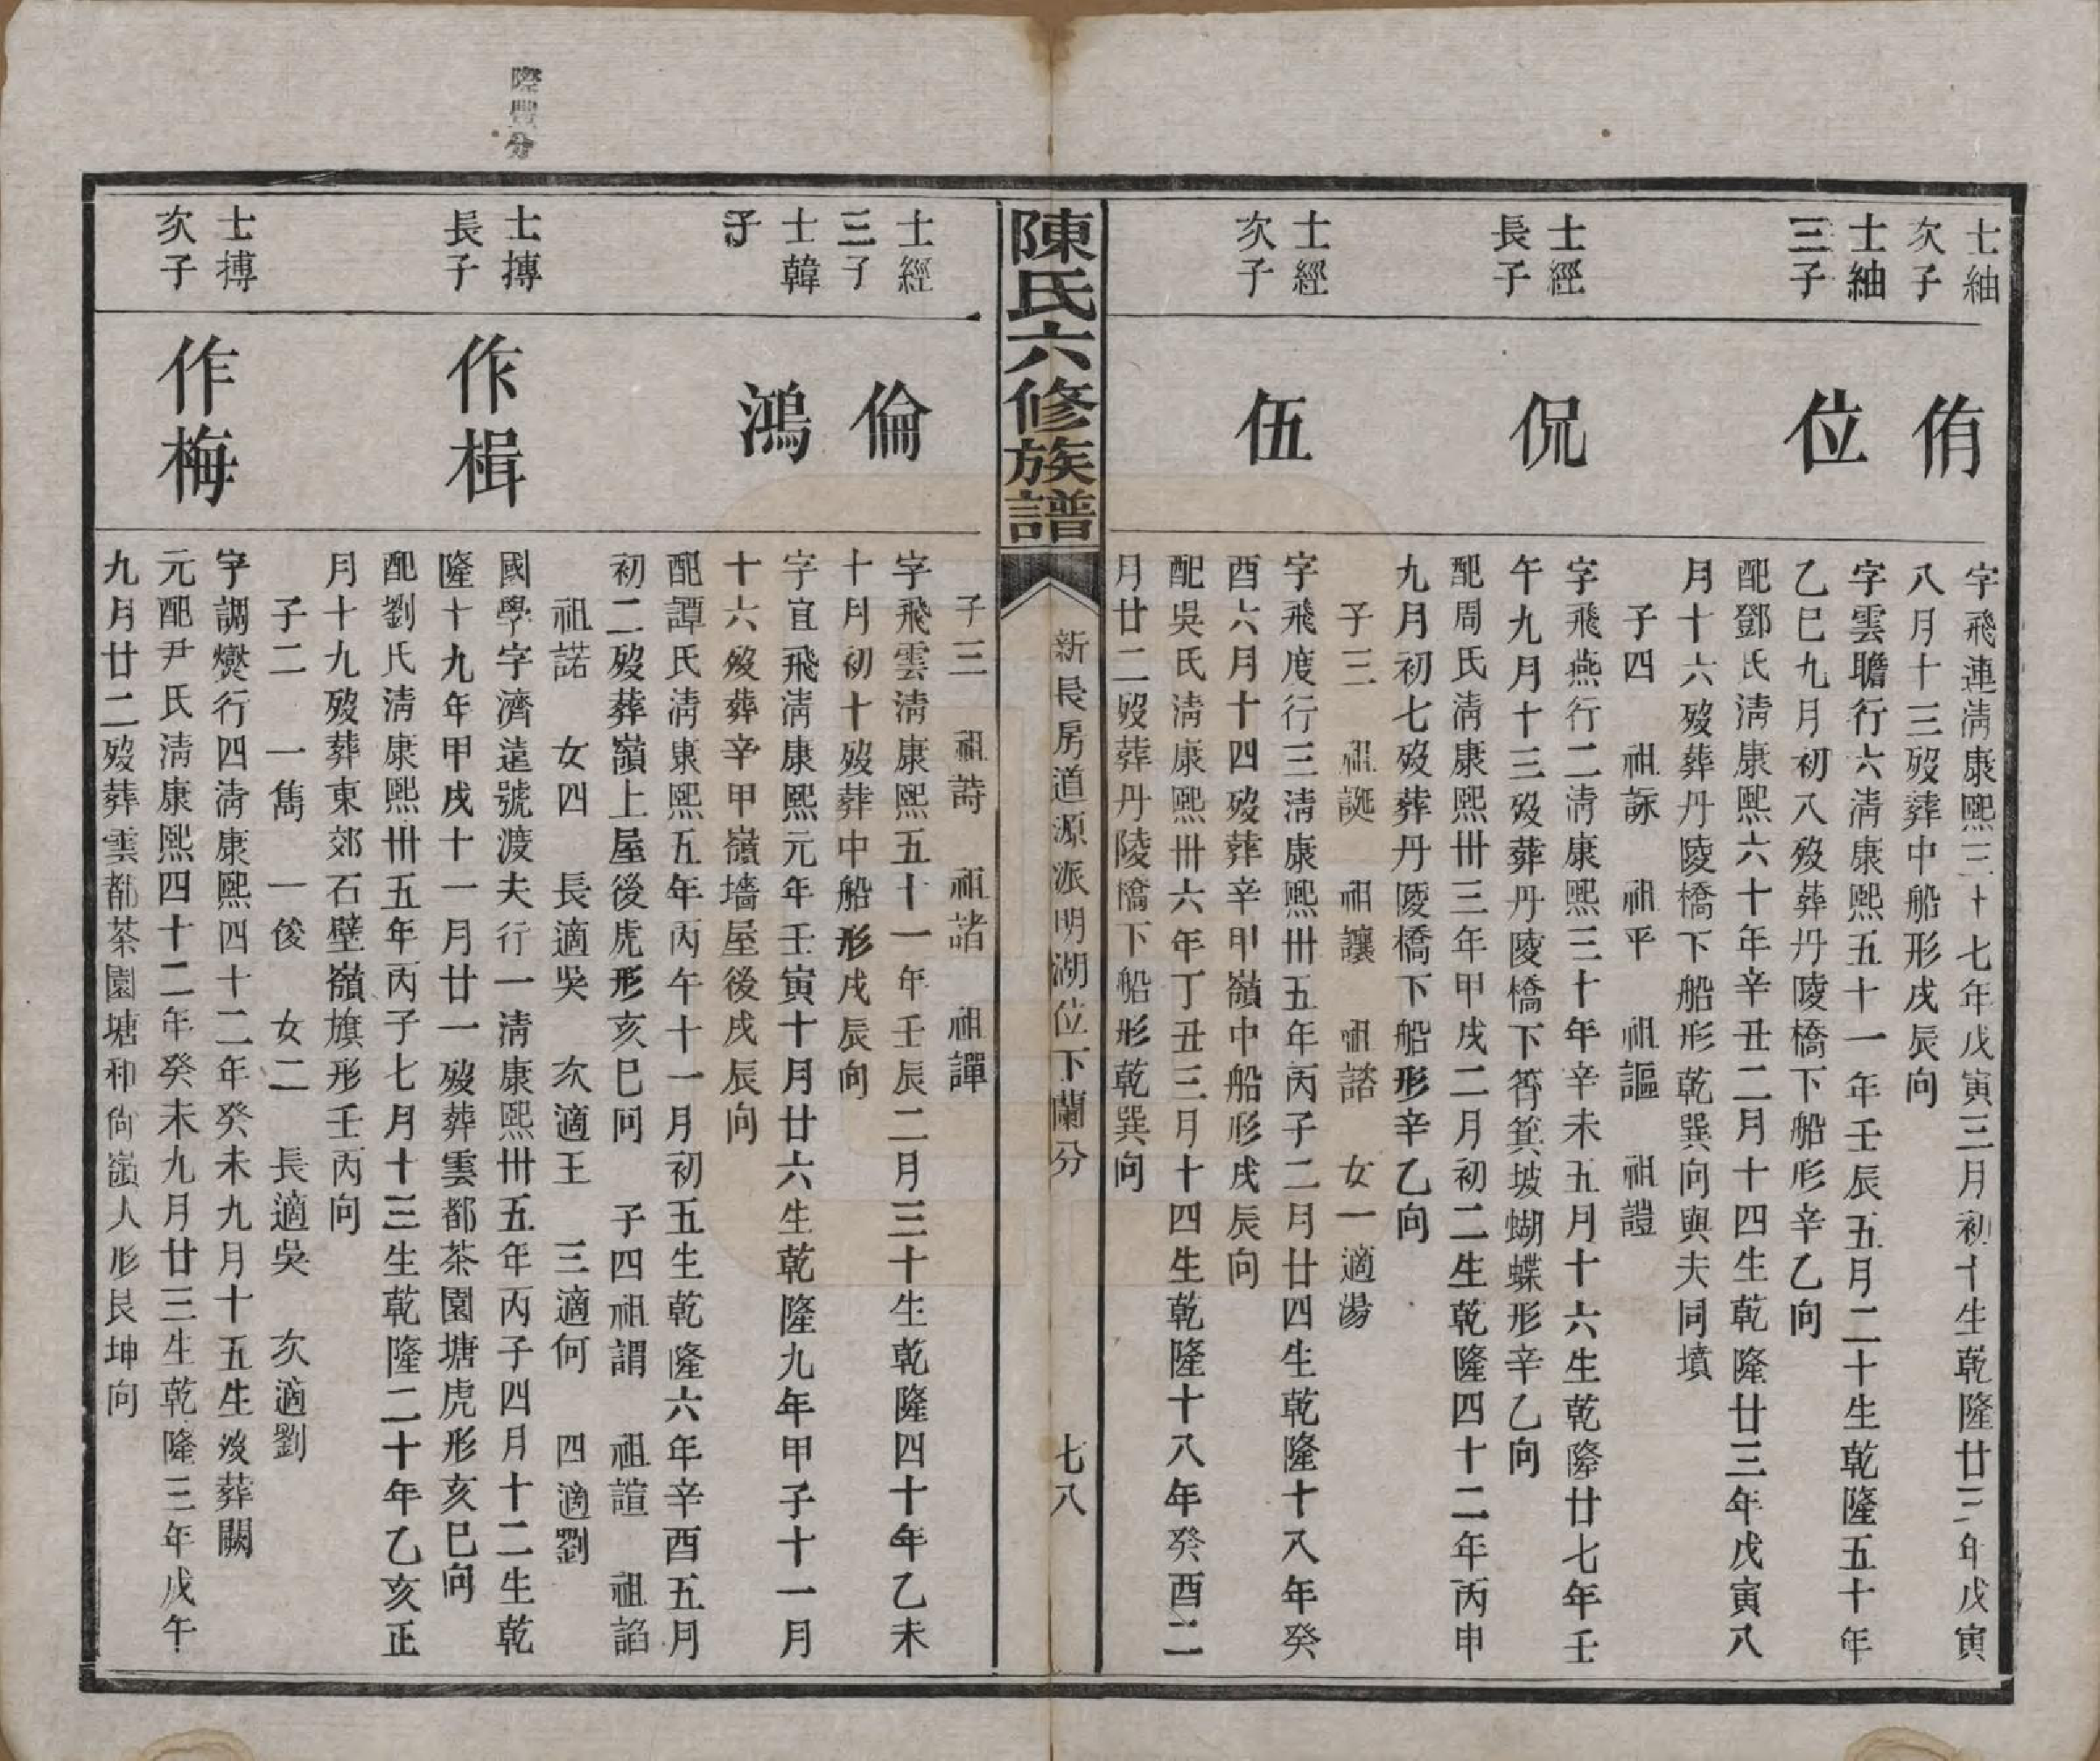 士紬
次子
侑
字飛連淸康熙三十七年戊寅三月初十生乾隆廿三年戊寅
八月十三歿葬中船形戌辰向
士紬
三子
位
字雲瞻行六淸康熙五十一年壬辰五月二十生乾隆五十年
乙巳九月初八歿葬丹陵橋下船形辛乙向
配鄧氏淸康熙六十年辛丑二月十四生乾隆廿三年戊寅八
月十六歿葬丹陵橋下船形乾巽向與夫同墳
子四　祖詠　祖平　祖謳　祖禮
士經
長子
侃
字飛燕行二淸康熙三十年辛未五月十六生乾隆廿七年壬
午九月十三歿葬丹陵橋下筲箕坡蝴蝶形辛乙向
配周氏淸康熙卅三年甲戌二月初二生乾隆四十二年丙申
九月初七歿葬丹陵橋下船形辛乙向
子三　祖誕　祖讓　祖諮　女一適湯
士經
次子
伍
字飛度行三淸康熙卅五年丙子二月廿四生乾隆十八年癸
酉六月十四歿葬辛甲嶺中船形戌辰向
配吳氏淸康熙卅六年丁丑三月十四生乾隆十八年癸酉二
月廿二歿葬丹陵橋下船形乾巽向
陳氏六修族譜
新長房道源派明湖位下蘭分
七八
子三　祖詩　祖諸　祖譂
士經
三子
倫
字飛雲淸康熙五十一年壬辰二月三十生乾隆四十年乙未
十月初十歿葬中船形戌辰向
士韓
子
鴻
字宜飛淸康熙元年壬寅十月廿六生乾隆九年甲子十一月
十六歿葬辛甲嶺墻屋後戌辰向
配譚氏淸康熙五年丙午十一月初五生乾隆六年辛酉五月
初二歿葬嶺上屋後虎形亥巳向　子四祖謂　祖諠　祖諂
祖諾　女四　長適吳　次適王　三適何　四適劉
隆豐分
士摶
長子
作楫
國學字濟遠號渡夫行一淸康熙卅五年丙子四月十二生乾
隆十九年甲戌十一月廿一歿葬雲都茶園塘虎形亥巳向
配劉氏淸康熙卅五年丙子七月十三生乾隆二十年乙亥正
月十九歿葬東郊石壁嶺旗形壬丙向
子二　一儁　一俊　女二　長適吳　次適劉
士摶
次子
作梅
字調爕行四淸康熙四十二年癸未九月十五生歿葬闕
元配尹氏淸康熙四十二年癸未九月廿三生乾隆三年戊午
九月廿二歿葬雲都茶園塘和尙嶺人形艮坤向